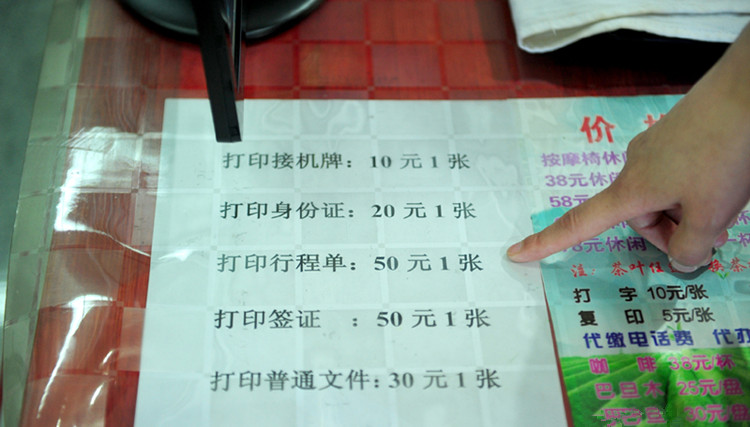 打印接机牌：10 元 1 张
打印身份证：20 元 1 张
打印行程单：50 元 1 张
打印签证 ：50 元 1 张
打印普通文件：30 元 1 张
价
按摩椅休
38元休闲
58元
休闲
注：茶叶
换茶
打 字 10元/张
复 印 5元/张
代缴电话费 代办
咖 啡 38元/杯
巴旦木 25元/
30元/